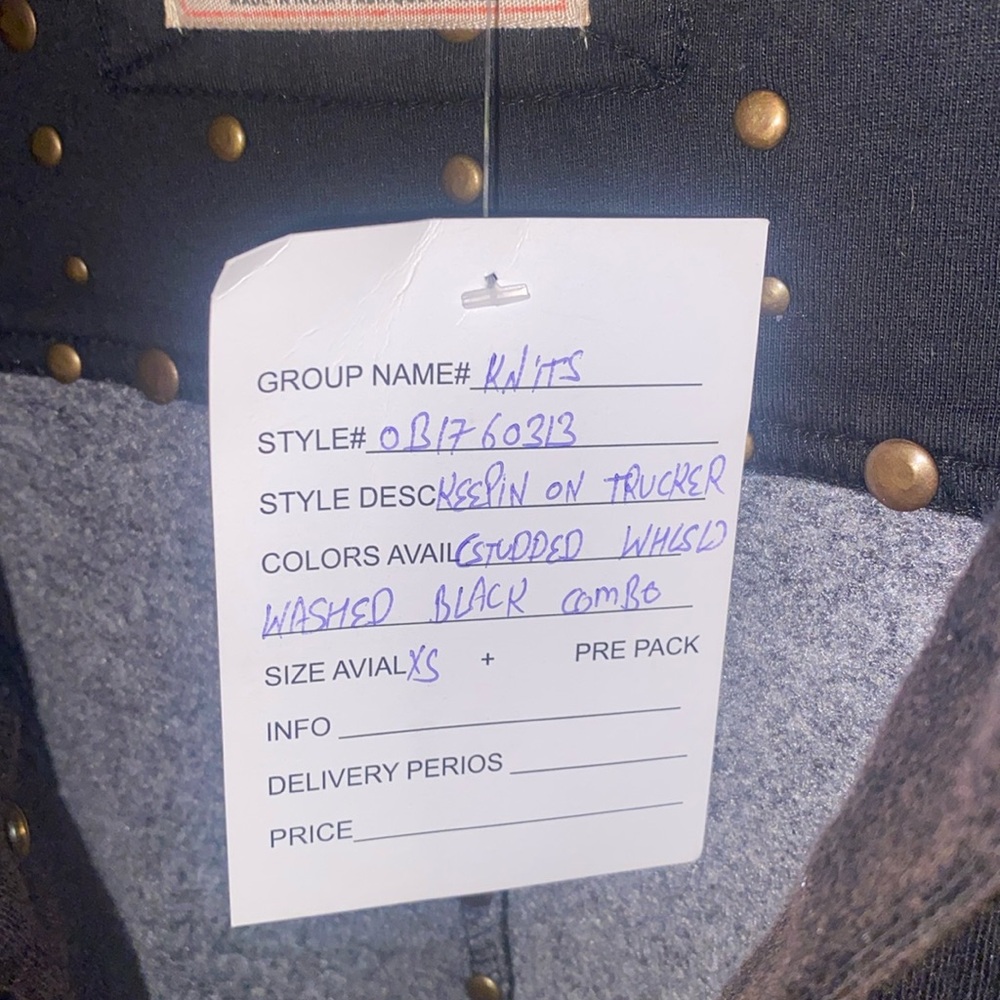 GROUP NAME# KNITS
STYLE# OB1760313
STYLE DESC KEEPIN ON TRUCKER
COLORS AVAIL (STUDDED
WASHED BLACK COMBO
SIZE AVIAL XS + PRE PACK
INFO
DELIVERY PERIOS
PRICE